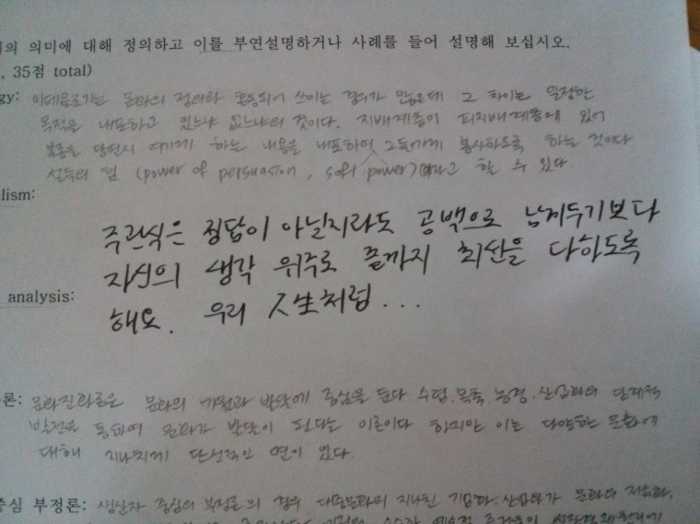 의 의미에 대해 정의하고 이를 부연설명하거나 사례를 들어 설명해 보십시오.
, 35점 total)
gy: 이데올로기는 문화의 정의와 혼동되어 쓰이는 경우가 많은데 그 차이는 일정한
목적을 내포하고 있느냐 없느냐의 것이다. 지배계층이 피지배계층에 있어
복종을 당연시 여기게 하는 내용을 내포하여 그들에게 봉사하도록 하는 것이다
설득의 힘 (power of persuasion, soft power)라고 할 수 있다
lism:
주관식은 정답이 아닐지라도 공백으로 남겨두기보다
자신의 생각 위주로 끝까지 최선을 다하도록
analysis:
해요. 우리 人生처럼...
론: 문화진화론은 문화의 기원과 발전에 중심을 둔다 수렵, 목축, 농경, 산업화의 단계적
발전을 통하여 문화가 발달이 된다는 이론이다 하지만 이는 다양한 문화에
대해 지나치게 단선적인 면이 있다.
중심 부정론: 생산자 중심의 부정론의 경우 대중문화의 지나친 기업화, 산업화가 문화의 저급화,